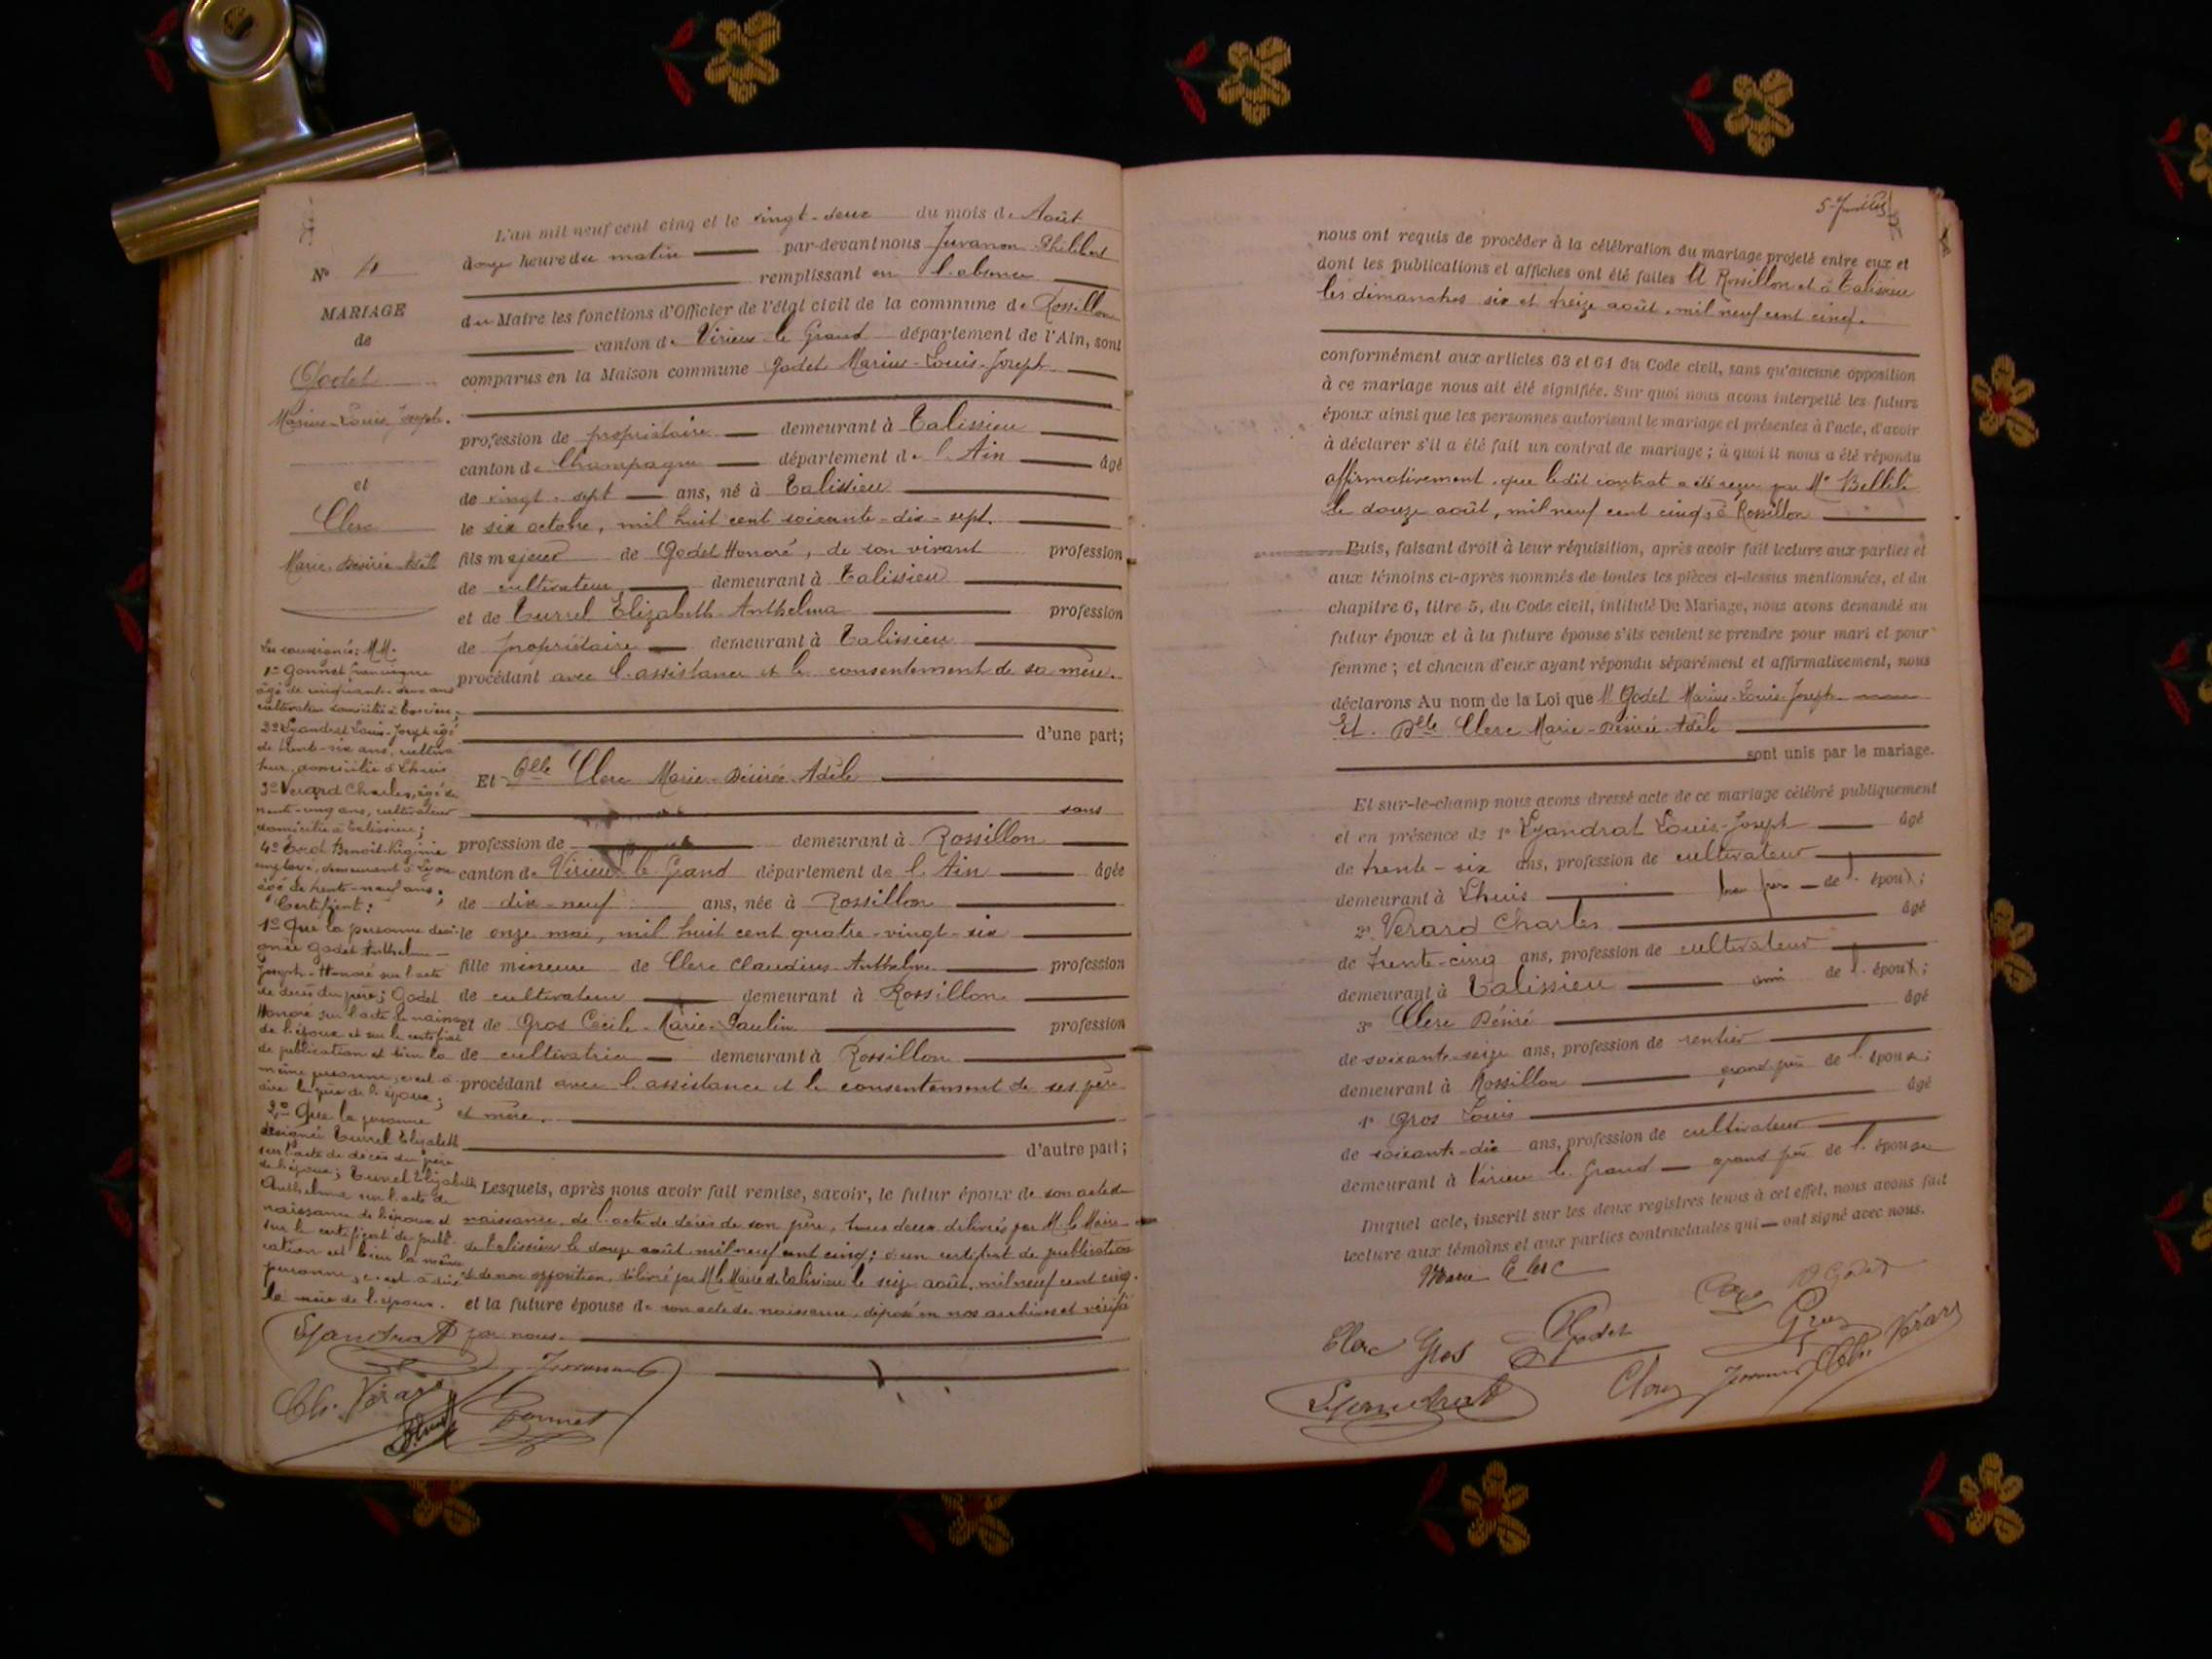 L'an mil neuf cent cinq et le vingt-deux du mois de Août
douze heure du matin par-devant nous Juvanon Philibert
remplissant en l'absence
du Maire les fonctions d'Officier de l'état civil de la commune de Rossillon
canton de Virieu le Grand département de l'Ain, sont
comparus en la Maison commune Godet Marius-Louis-Joseph
profession de propriétaire demeurant à Talissieu
canton de Champagne département de l'Ain âgé
de vingt-sept ans, né à Talissieu
le six octobre, mil huit cent soixante-dix-sept.
fils majeur de Godet Honoré, de son vivant profession
de cultivateur demeurant à Talissieu
et de Turrel Elizabeth Anthelma profession
de propriétaire demeurant à Talissieu
procédant avec l'assistance et le consentement de sa mère.
d'une part;
Et Dlle Clerc Marie-Désirée-Adèle
sans
profession de demeurant à Rossillon
canton de Virieu le Grand département de l'Ain âgée
de dix-neuf ans, née à Rossillon
le onze mai, mil huit cent quatre-vingt-six
fille mineure de Clerc Claudius-Anthelme profession
de cultivateur demeurant à Rossillon
et de Gros Cécile-Marie-Paulin profession
de cultivatrice demeurant à Rossillon
procédant avec l'assistance et le consentement de ses père
et mère.
d'autre part;
Lesquels, après nous avoir fait remise, savoir, le futur époux de son acte de
naissance, de l'acte de décès de son père, tous deux délivrés par M. le Maire
de Talissieu le douze août mil neuf cent cinq; d'un certificat de publication
et de non opposition, délivré par M. le Maire de Talissieu le seize août, mil neuf cent cinq.
et la future épouse de son acte de naissance, déposé en nos archives et vérifié
par nous.
N° 4
MARIAGE
de
Godet
Marius-Louis Joseph.
et
Clerc
Marie Désirée Adèle
Les soussignés: MM.
1° Gonnet
âgé de cinquante-deux ans
cultivateur domicilié à
2° Eyandrat Louis-Joseph âgé
de trente-six ans, cultiva
teur, domicilié à Lhuis
3° Verard Charles, âgé de
trente-cinq ans, cultivateur
domicilié à Talissieu;
4° Benoit
employé, demeurant à Lyon
âgé de trente-neuf ans;
Certifient:
1° Que la personne dési-
gnée Godet Anthelme
Joseph-Honoré sur l'acte
de décès du père; Godet
Honoré sur l'acte de naissance
de l'époux et sur le certificat
de publication est bien la
même personne, c'est à
dire le père de l'époux;
2° Que la personne
désignée Turrel Elizabeth
sur l'acte de décès du père
de l'époux; Turrel Elizabeth
Anthelma sur l'acte de
naissance de l'époux et
sur le certificat de publi-
cation est bien la même
personne, c'est à dire
la mère de l'époux.
Eyandrat
Juvanon
Ch. Vérard
Gonnet
nous ont requis de procéder à la célébration du mariage projeté entre eux et
dont les publications et affiches ont été faites A Rossillon et à Talissieu
les dimanches six et treize août, mil neuf cent cinq.
conformément aux articles 63 et 64 du Code civil, sans qu'aucune opposition
à ce mariage nous ait été signifiée. Sur quoi nous avons interpellé les futurs
époux ainsi que les personnes autorisant le mariage et présentes à l'acte, d'avoir
à déclarer s'il a été fait un contrat de mariage; à quoi il nous a été répondu
affirmativement, que ledit contrat a été reçu par Me
le douze août, mil neuf cent cinq, à Rossillon
Puis, faisant droit à leur réquisition, après avoir fait lecture aux parties et
aux témoins ci-après nommés de toutes les pièces ci-dessus mentionnées, et du
chapitre 6, titre 5, du Code civil, intitulé Du Mariage, nous avons demandé au
futur époux et à la future épouse s'ils veulent se prendre pour mari et pour
femme; et chacun d'eux ayant répondu séparément et affirmativement, nous
déclarons Au nom de la Loi que M Godet Marius-Louis-Joseph
Et Dlle Clerc Marie-Désirée-Adèle
sont unis par le mariage.
Et sur-le-champ nous avons dressé acte de ce mariage célébré publiquement
et en présence de 1° Eyandrat Louis-Joseph âgé
de trente-six ans, profession de cultivateur
demeurant à Lhuis beau frère de l'époux;
2° Verard Charles âgé
de trente-cinq ans, profession de cultivateur
demeurant à Talissieu ami de l'époux;
3° Clerc Désiré âgé
de soixante-seize ans, profession de rentier
demeurant à Rossillon grand père de l'épouse;
4° Gros Louis âgé
de soixante-dix ans, profession de cultivateur
demeurant à Virieu le Grand grand père de l'épouse
Duquel acte, inscrit sur les deux registres tenus à cet effet, nous avons fait
lecture aux témoins et aux parties contractantes qui ont signé avec nous.
Marie Clerc
Clerc Gros Godet
Eyandrat
Juvanon
Ch. Vérard